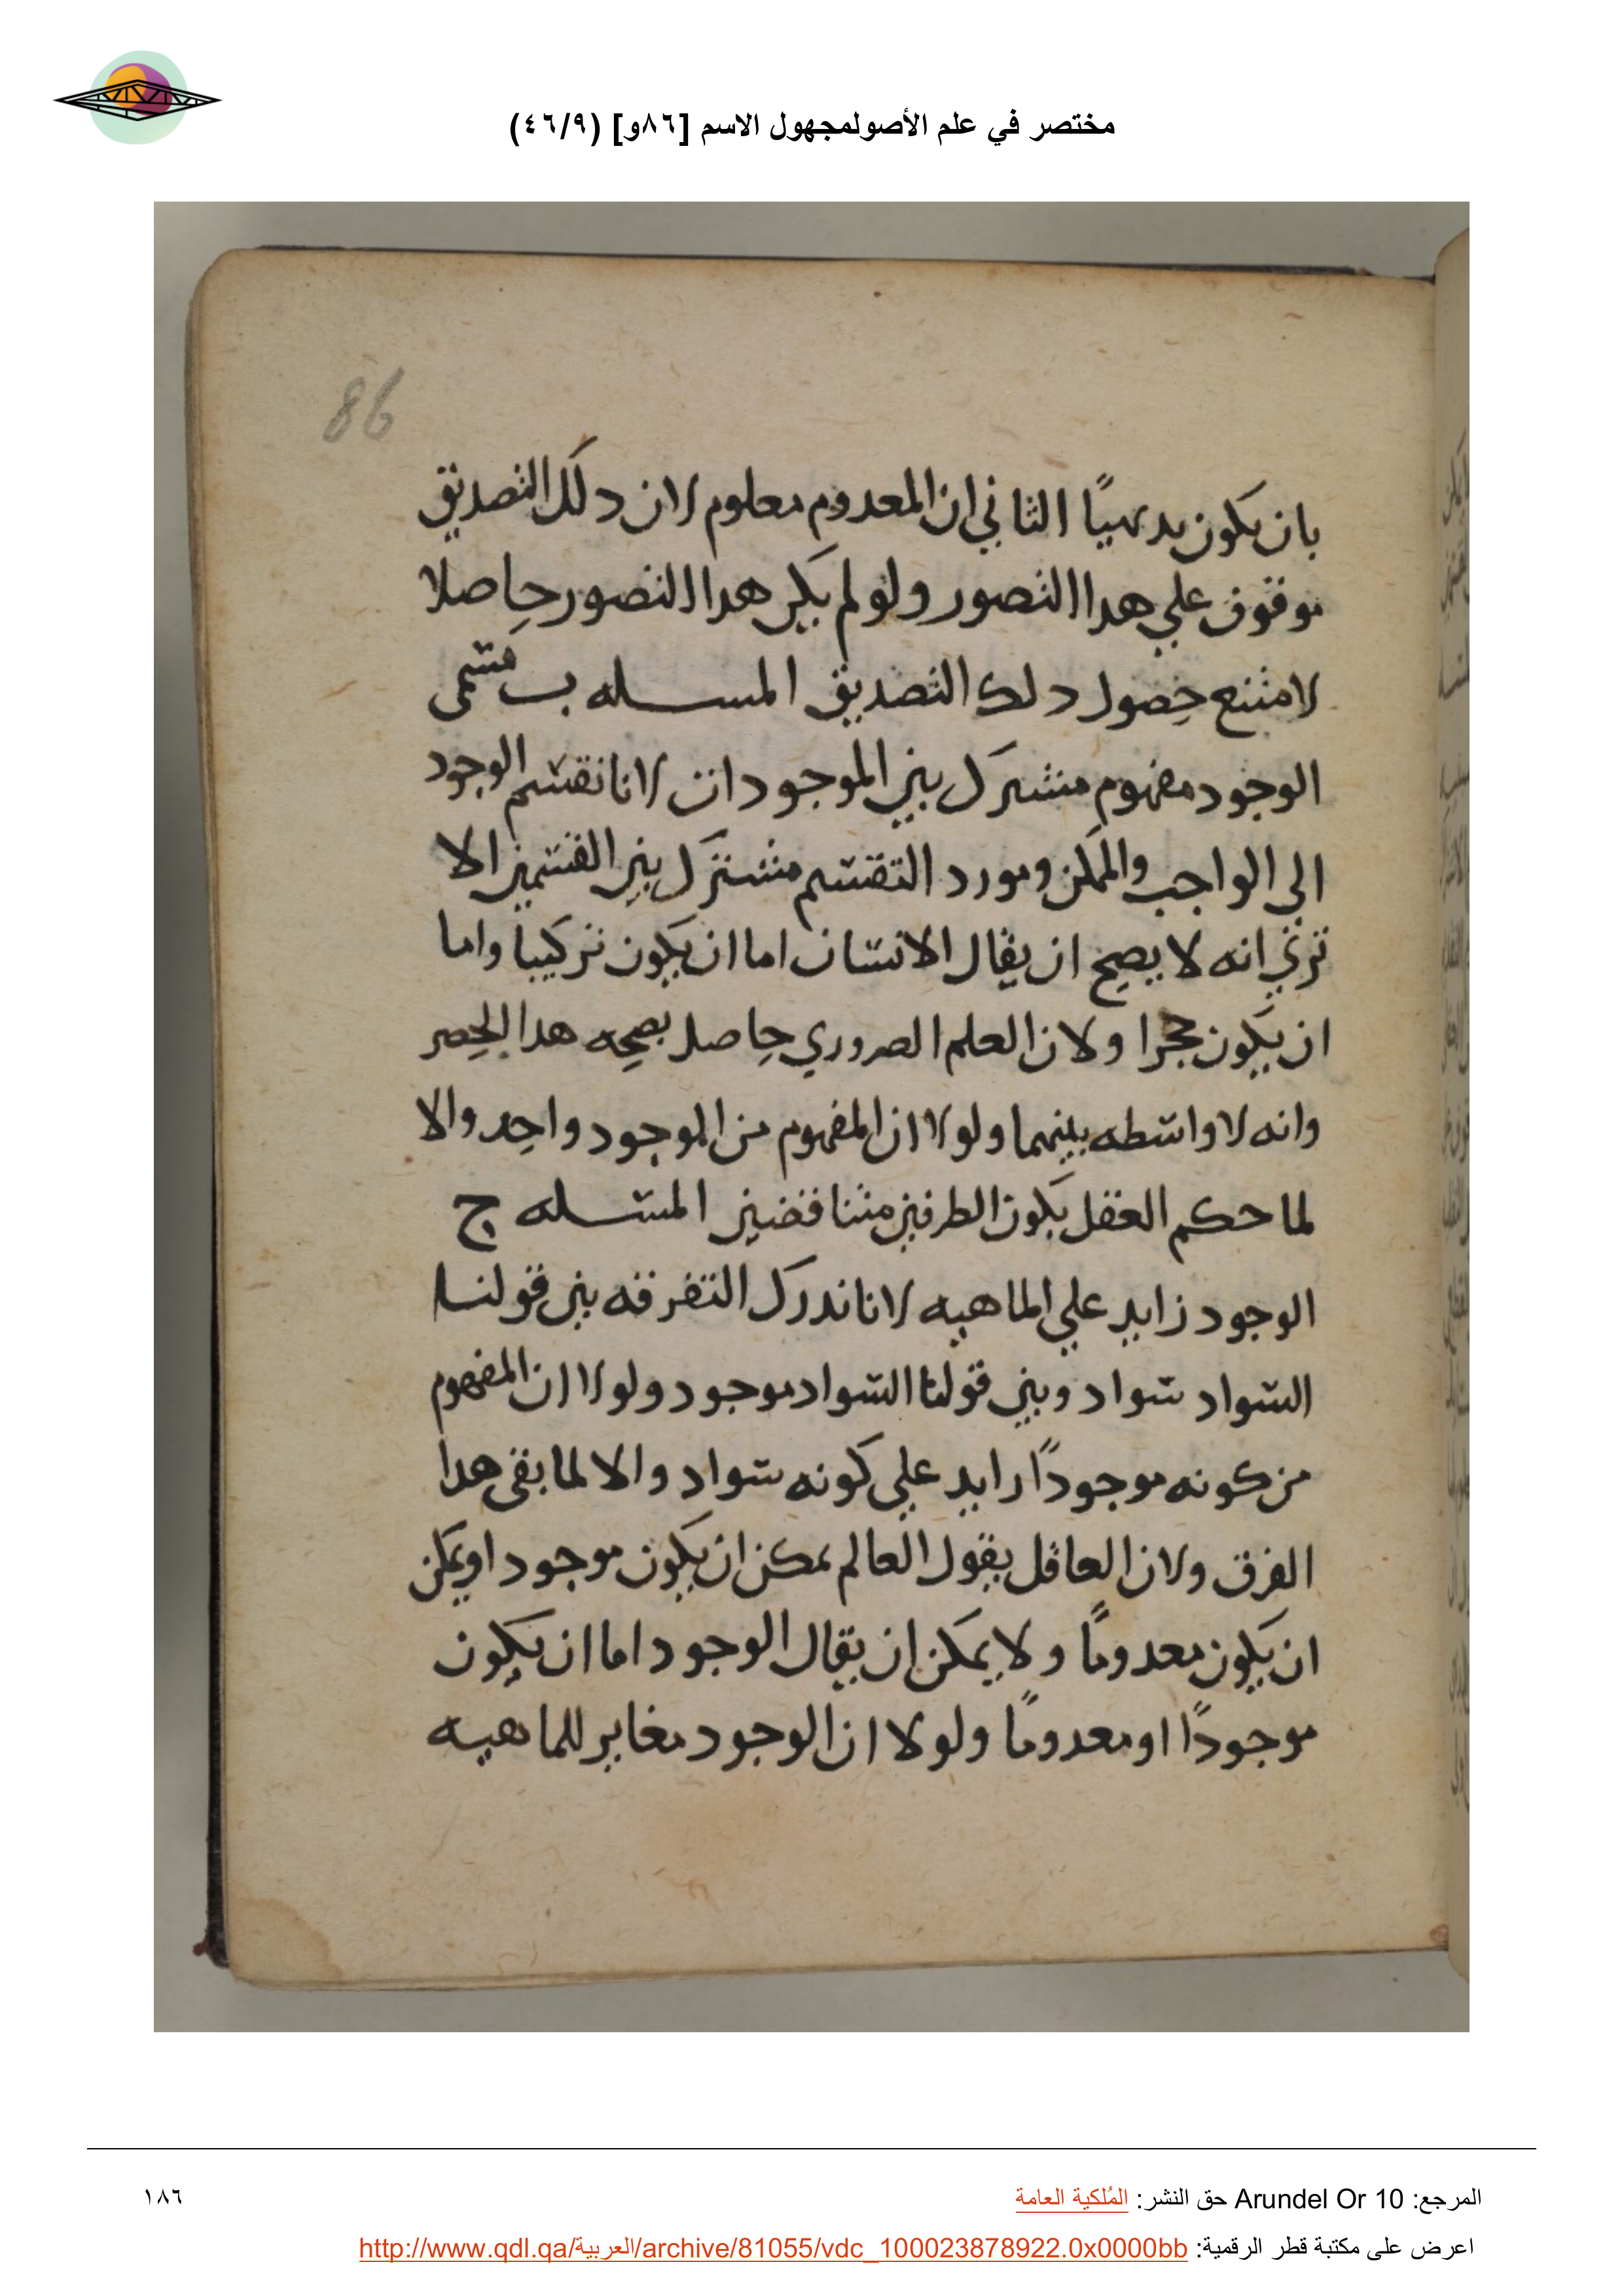 مختصر في علم الأصولمجهول الاسم [٨٦و] (٤٦/٩)
86
بان يكون بديهيًا الثاني ان المعدوم معلوم لان دلك التصديق
موقوف علي هدا التصور ولو لم يكن هدا التصور حاصلا
لامتنع حصول دلك التصديق المسله ب مسمى
الوجود مفهوم مشترك بين الموجودات لانا نقسم الوجود
الي الواجب والممكن ومورد التقسم مشترك بين القسمين الا
تري انه لا يصح ان يقال الانسان اما ان يكون تركيبا واما
ان يكون حجرا ولان العلم الصروري حاصل بصحه هدا الحصر
وانه لا واسطه بينهما ولولا ان المفهوم من الموجود واحد والا
لما حكم العقل بكون الطرفين متناقضين المسله ج
الوجود زايد علي الماهيه لانا ندرك التفرقه بين قولنا
السواد سواد وبين قولنا السواد موجود ولولا ان المفهوم
من كونه موجودًا رايد علي كونه سواد والا لما بقى هدا
الفرق ولان العاقل يقول العالم يمكن ان يكون موجود او يمكن
ان يكون معدومًا ولا يمكن ان يقال الوجود اما ان يكون
موجودًا او معدومًا ولولا ان الوجود مغاير للماهيه
المرجع: Arundel Or 10 حق النشر: المُلكية العامة
١٨٦
اعرض على مكتبة قطر الرقمية: http://www.qdl.qa/العربية/archive/81055/vdc_100023878922.0x0000bb